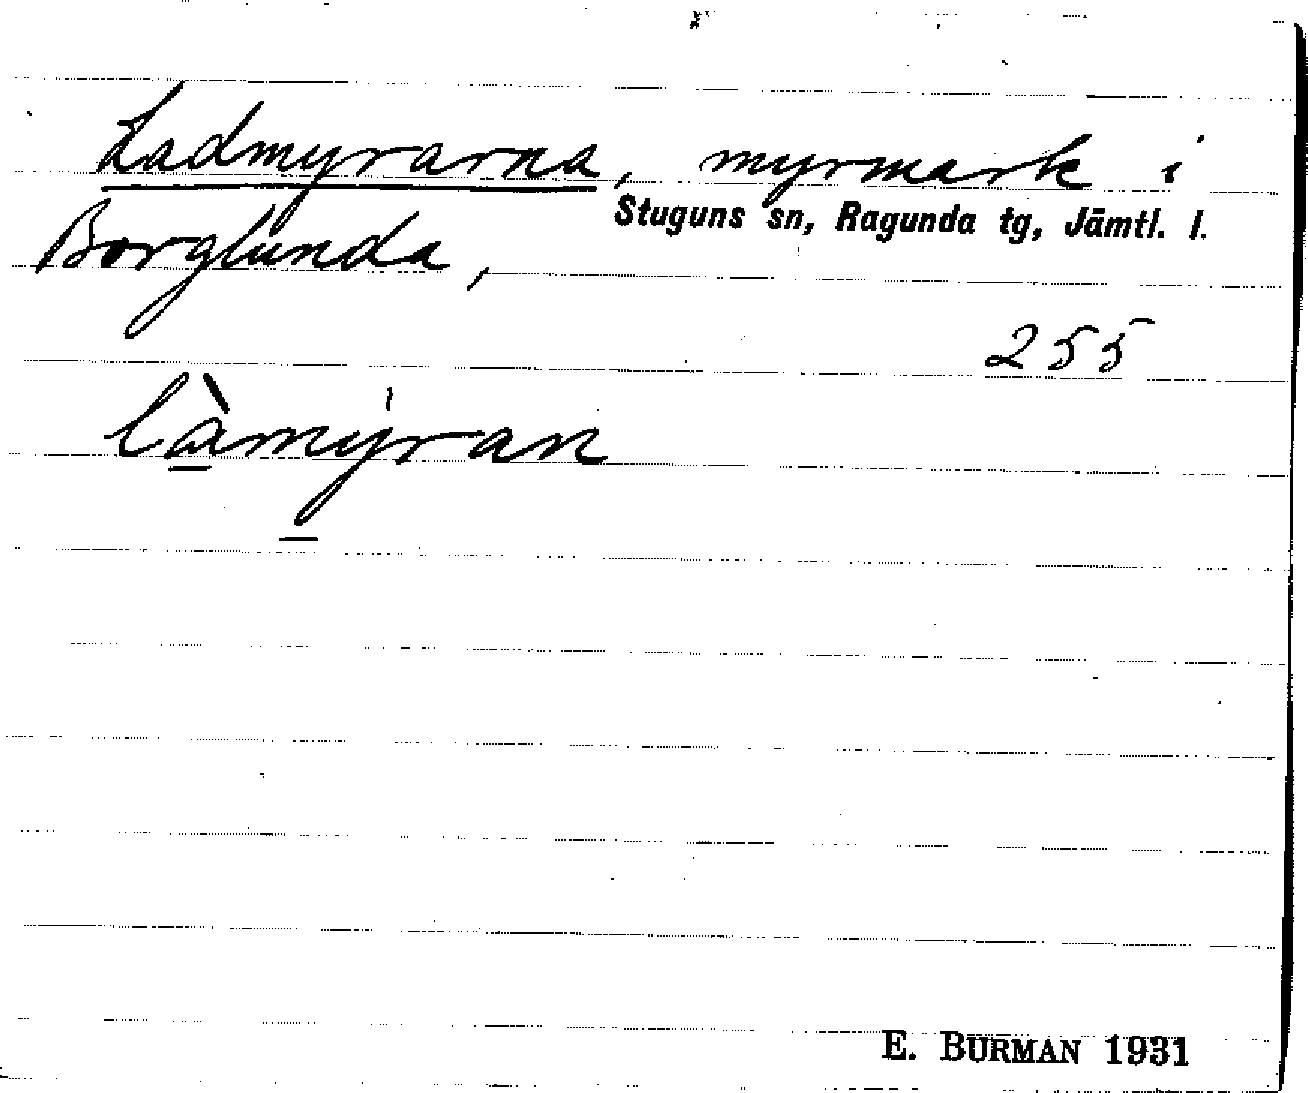 Ladmyrarna, myrmark i
Stuguns sn, Ragunda tg, Jämtl. l.
Borglunda,
255
làmýran
E. BURMAN 1931